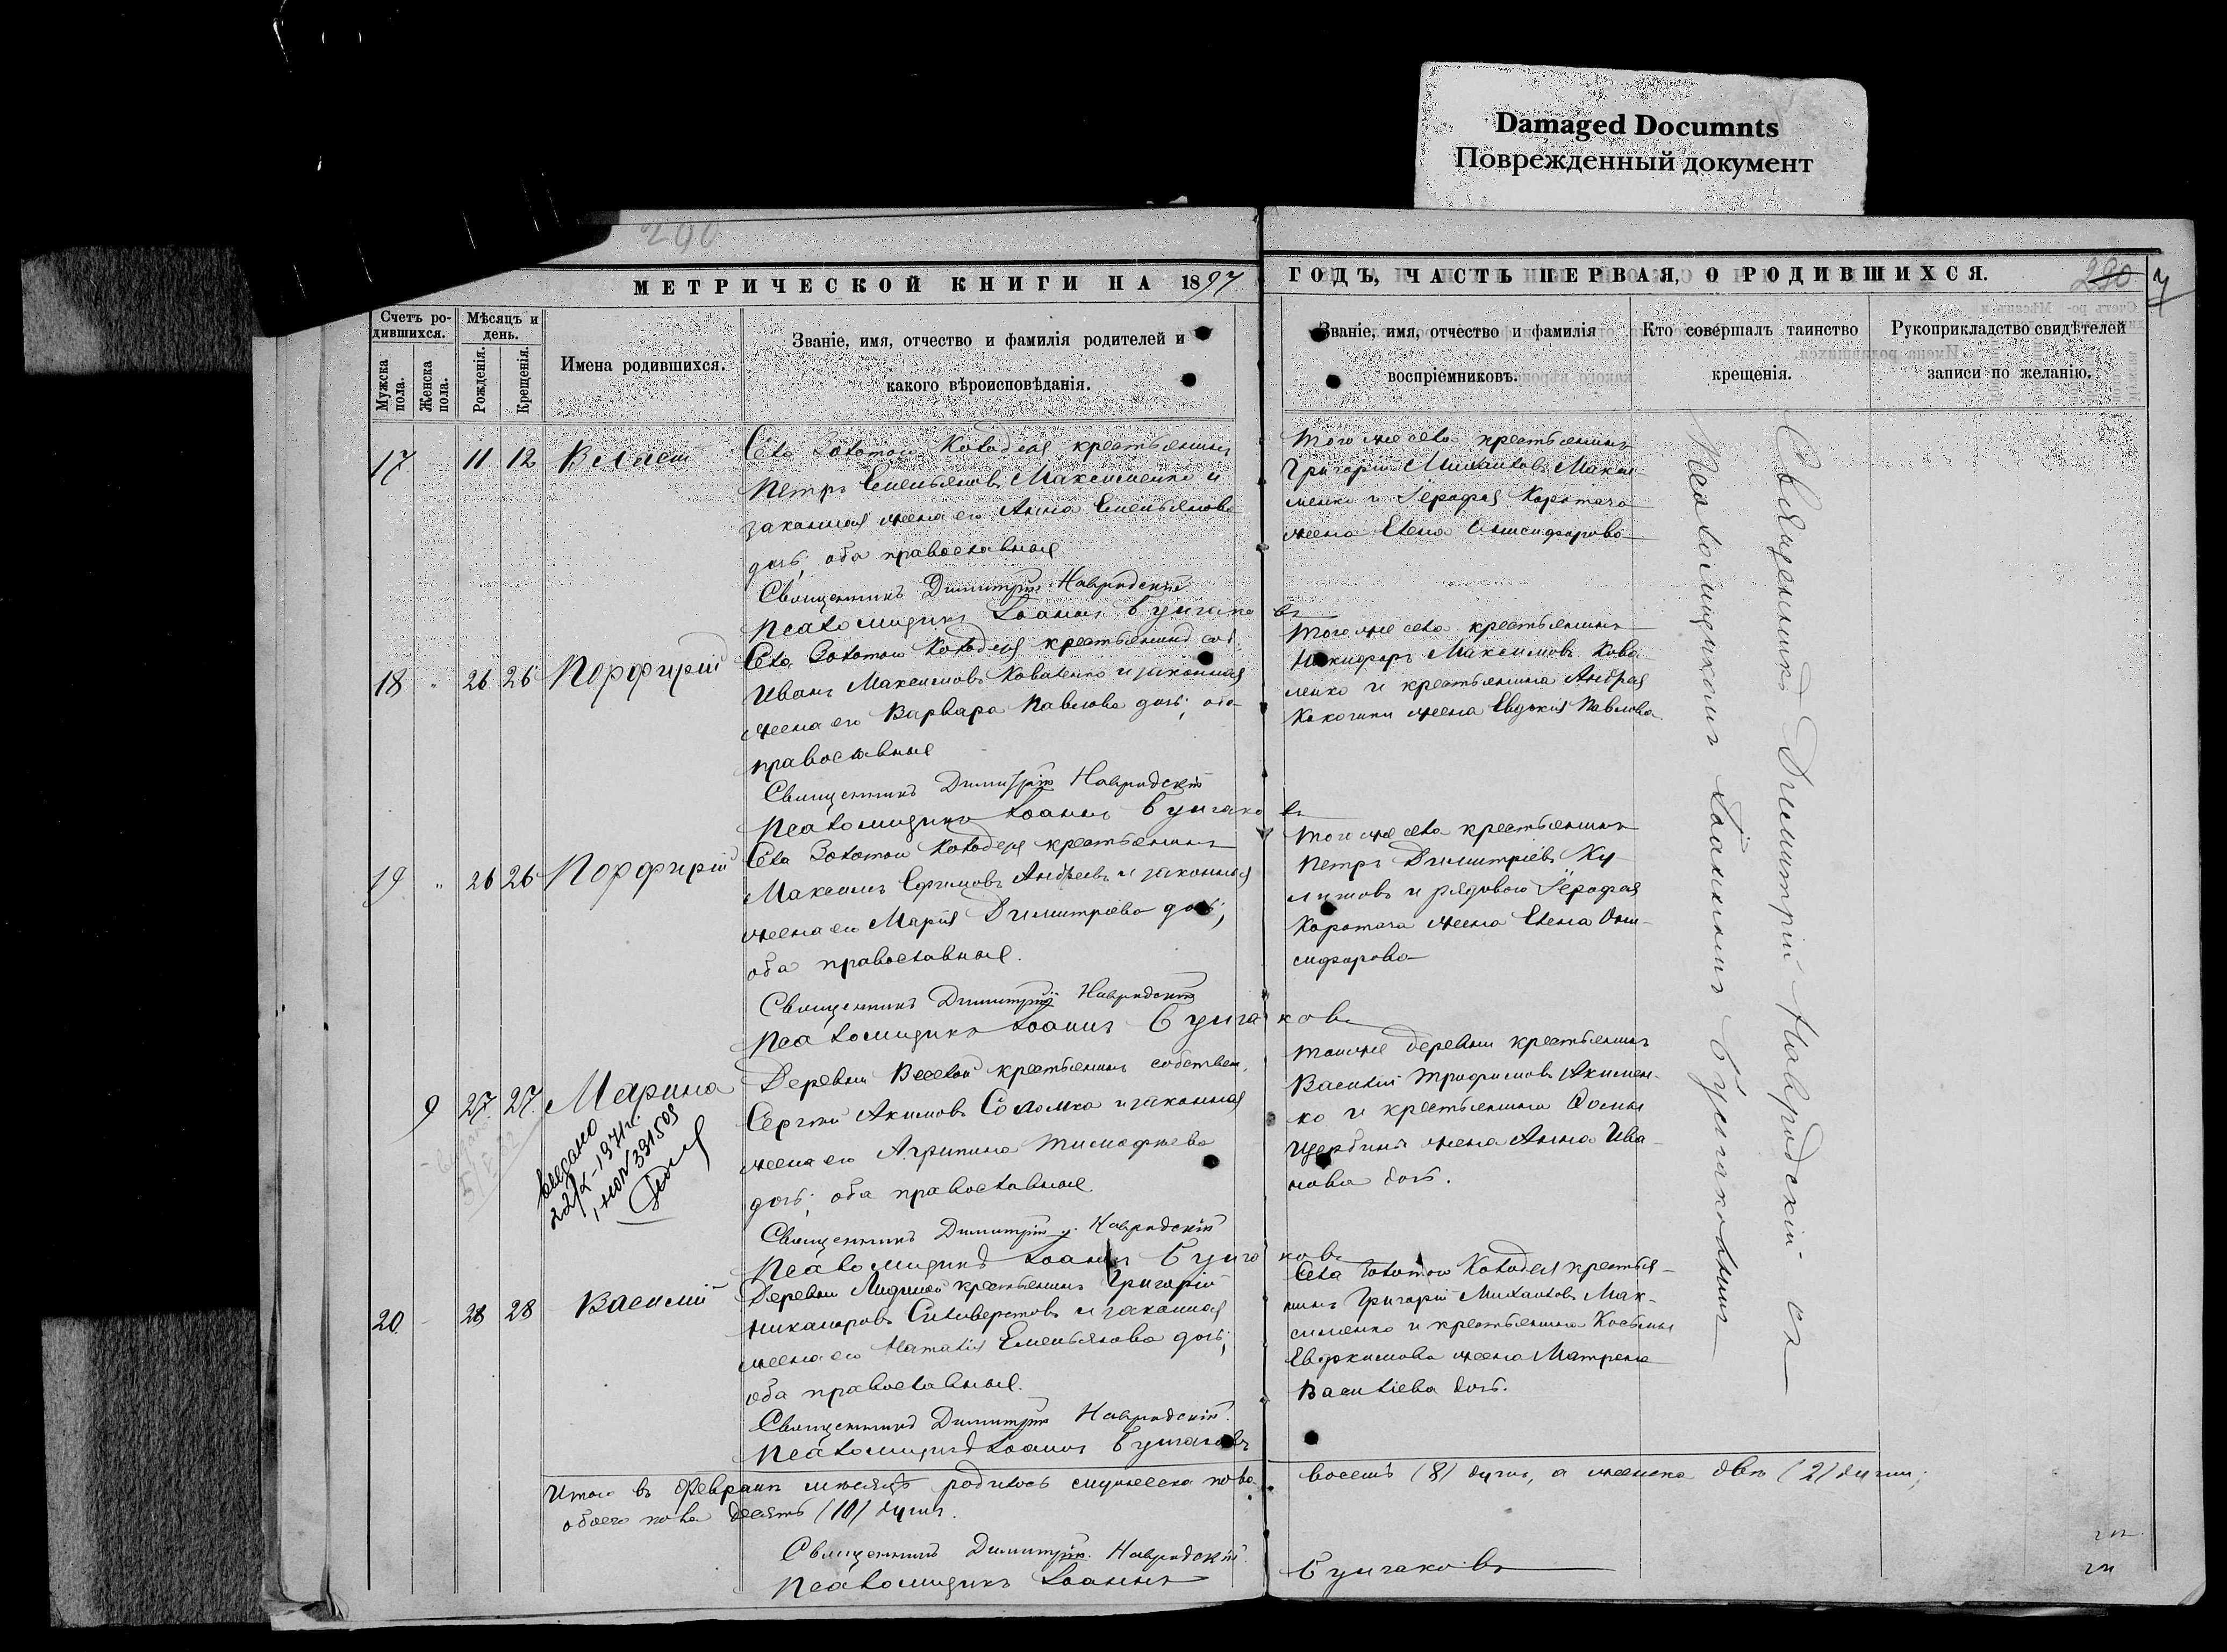 Damaged Documnts
Поврежденный документ
290
МЕТРИЧЕСКОЙ КНИГИ НА 1897
ГОДЪ, ЧАСТЬ ПЕРВАЯ, О РОДИВШИХСЯ.
290
Счетъ ро-
дившихся.
Мужска
пола.
Женска
пола.
Мѣсяцъ и
день.
Рожденія.
Крещенія.
Имена родившихся.
Званіе, имя, отчество и фамилія родителей и
какого вѣроисповѣданія.
Званіе, имя, отчество и фамилія
воспріемниковъ.
Кто совершалъ таинство
крещенія.
Рукоприкладство свидѣтелей
записи по желанію.
17 11 12
Села Золотого Колодезя крестьянинъ
Петръ Емельяновъ Максименко и
законная жена его Анна Емельянова
дочь, оба православные
Священникъ Димитрій Навродскій
Псаломщикъ Іоаннъ Булгаковъ
Того же села крестьянинъ
Григорій Михаиловъ Макси-
менко и Коротача
жена Елена Онисифорова
18 " 26 26 Порфирій
Села Золотого Колодезя крестьянинъ соб.
Иванъ Максимовъ Коваленко и законная
жена его Варвара Павлова дочь, оба
православные
Священникъ Димитрій Навродскій
Псаломщикъ Іоаннъ Булгаковъ
Того же села крестьянинъ
Никифоръ Максимовъ Кова-
ленко и крестьянина Андрея
жена Евдокія Павлова
19 " 26 26 Порфирій
Села Золотого Колодезя крестьянинъ
Максимъ Ефимовъ и законная
жена его Марія Димитріева дочь,
оба православные.
Священникъ Димитрій Навродскій
Псаломщикъ Іоаннъ Булгаковъ
Того же села крестьянинъ
Петръ Димитріевъ
и рядового
Коротача жена Елена Они-
сифорова
9 27 27 Марина
22/X-1971г.
331509
Деревни Веселой крестьянинъ собствен.
Сергій Акимовъ Соломка и законная
жена его Агрипина Тимофѣева
дочь, оба православные.
Священникъ Димитрій Навродскій
Псаломщикъ Іоаннъ Булгаковъ
Той же деревни крестьянинъ
Василій Трифимовъ Акимен-
ко и крестьянина Фомы
Щербины жена Анна Ива-
нова дочь.
20 28 28 Василій
Деревни крестьянинъ Григорій
Никаноровъ Силиверстовъ и законная
жена его Наталія Емельянова дочь,
оба православные.
Священникъ Димитрій Навродскій.
Псаломщикъ Іоаннъ Булгаковъ
Села Золотого Колодезя крестья-
нинъ Григорій Михаиловъ Мак-
сименко и крестьянина Косьмы
Евдокимова жена Матрена
Василіева дочь.
Священникъ Димитрій Навродскій съ
Псаломщикомъ Іоанномъ Булгаковымъ
Итого въ Февралѣ мѣсяцѣ родилось мужеска пола восемь (8) душъ, а женска двѣ (2) души;
обоего пола десять (10) душъ.
Священникъ Димитрій Навродскій.
Псаломщикъ Іоаннъ Булгаковъ